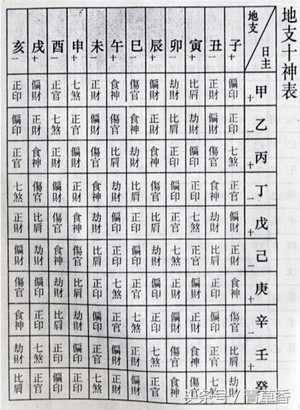 地支十神表
地支 日主
子十 丑一 寅十 卯一 辰十 巳一 午十 未一 申十 酉一 戌十 亥一
甲十 偏印 正財 比肩 劫財 偏財 傷官 食神 正財 七煞 正官 偏財 正印
乙一 正印 偏財 劫財 比肩 正財 食神 傷官 偏財 正官 七煞 正財 偏印
丙十 七煞 傷官 偏印 正印 食神 劫財 比肩 傷官 偏財 正財 食神 正官
丁一 正官 食神 正印 偏印 傷官 比肩 劫財 食神 正財 偏財 傷官 七煞
戊十 偏財 劫財 七煞 正官 比肩 正印 偏印 劫財 食神 傷官 比肩 正財
己一 正財 比肩 正官 七煞 劫財 偏印 正印 比肩 傷官 食神 劫財 偏財
庚十 食神 正印 偏財 正財 偏印 正官 七煞 正印 比肩 劫財 偏印 傷官
辛一 傷官 偏印 正財 偏財 正印 七煞 正官 偏印 劫財 比肩 正印 食神
壬十 比肩 正官 食神 傷官 七煞 正財 偏財 正官 偏印 正印 七煞 劫財
癸 劫財 七煞 傷官 食神 正官 偏財 正財 七煞 正印 偏印 正官 比肩
头条号